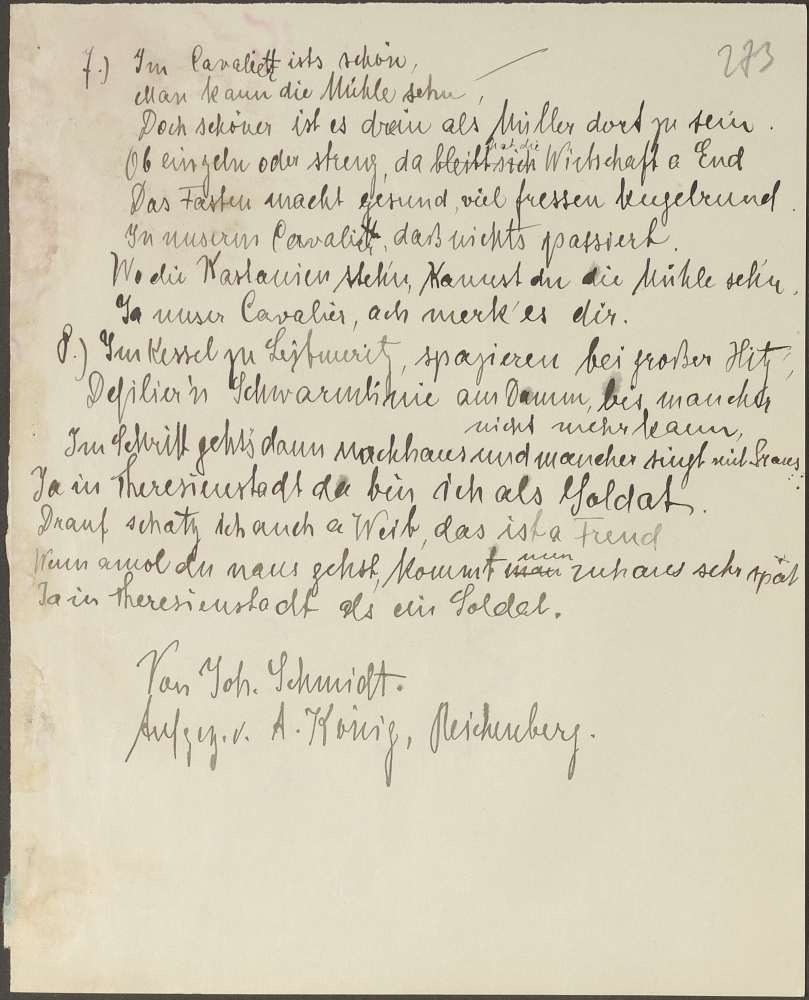 273
7.) Im Cavaliett ists schön,
Man kann die Mühle sehn,
Doch schöner ist es drein als Müller dort zu sein.
Ob einzeln oder streng, da bleibt sich hat die Wirtschaft a End
Das Fasten macht gesund, viel fressen kugelrund.
In unserm Cavaliett, daß nichts passiert.
Wo die Kastanien stehn, kannst du die Mühle sehn,
Ja unser Cavalier, ach merk' es dir.
8.) Im Kessel zu Leitmeritz, spazieren bei großer Hitz',
Defilier'n Schwarmlinie am Damm, bis mancher
nicht mehr kann,
Im Schritt geht's dann nachhaus und mancher singt mit Graus:
Ja in Theresienstadt da bin ich als Soldat.
Drauf schatz ich auch a Weib, das ist a Freud
Wenn amol du naus gehst, kommt man nun zuhaus sehr spät
Ja in Theresienstadt als ein Soldat.
Von Joh. Schmidt.
Aufgez. v. A. König, Reichenberg.